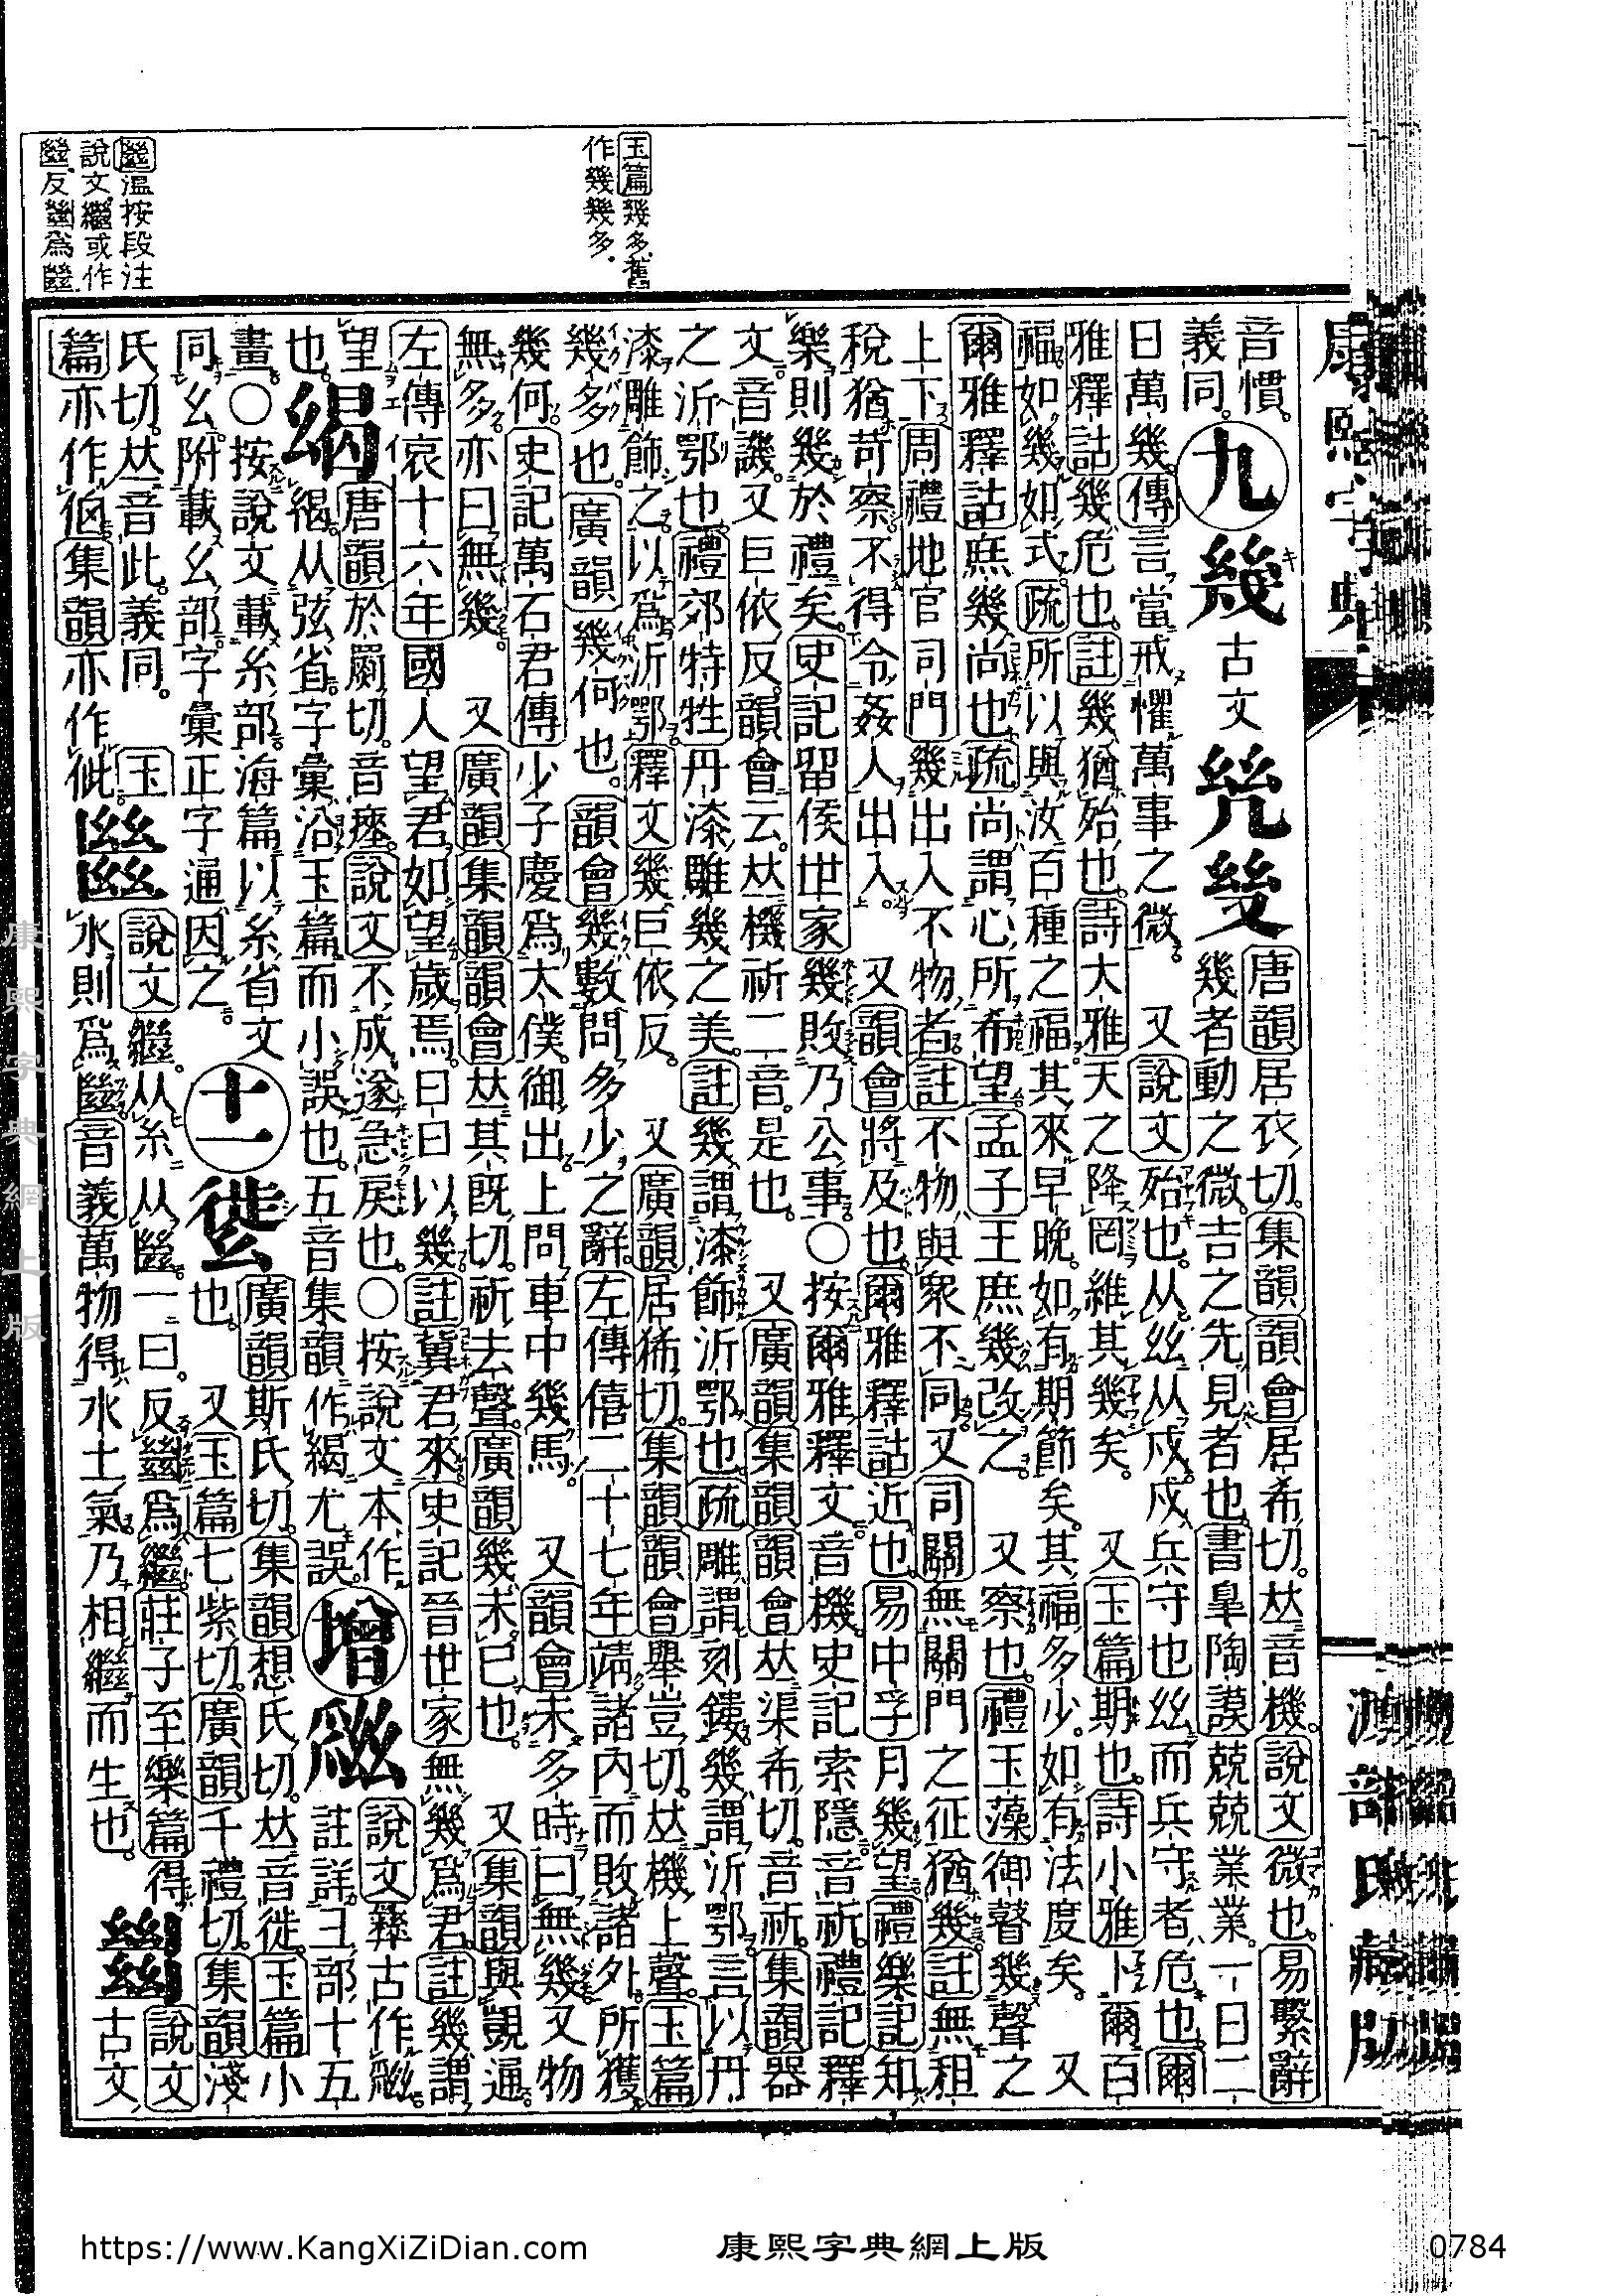 康熙字典
玉篇幾多舊
作幾幾多。
溫按段注
說文繼或作
音慣。
義同。
九
幾
古文
唐韻居衣切。集韻韻會居希切。𠀤音機。說文微也。易繫辭
幾者動之微。吉之先見者也。書臯陶謨兢兢業業。一日二
日萬幾。傳言當戒懼萬事之微。又說文殆也。从𢆶从戍。戍兵守也。𢆶而兵守者危也。爾
雅釋詁幾危也。註幾猶殆也。詩大雅天之降罔維其幾矣。又玉篇期也。詩小雅卜爾百
福如幾如式。疏所以與汝百種之福。其來早晚。如有期節矣。其福多少。如有法度矣。又
爾雅釋詁庶幾尚也。疏尚謂心所希望。孟子王庶幾改之。又察也。禮玉藻御瞽幾聲之
上下。周禮地官司門幾出入不物者。註不物與衆不同。又司關無關門之征猶幾。註無租
稅猶苛察。不得令姦人出入。又韻會將及也。爾雅釋詁近也。易中孚月幾望。禮樂記知
樂則幾於禮矣。史記留侯世家幾敗乃公事。○按爾雅釋文音機。史記索隱音祈。禮記釋
文音譏。又巨依反。韻會云𠀤機祈二音。是也。又廣韻集韻韻會𠀤渠希切。音祈。集韻器
之沂鄂也。禮郊特牲丹漆雕幾之美。註幾謂漆飾沂鄂也。疏雕謂刻鏤。幾謂沂鄂。言以丹
漆雕飾之。以爲沂鄂。釋文幾巨依反。又廣韻居狶切。集韻韻會舉豈切。𠀤機上聲。玉篇
幾多也。廣韻幾何也。韻會幾數問多少之辭。左傳僖二十七年靖諸內而敗諸外。所獲
幾何。史記萬石君傳少子慶爲太僕。御出上問車中幾馬。又韻會未多時曰無幾。又物
無多亦曰無幾。又廣韻集韻韻會𠀤其旣切。祈去聲。廣韻幾未已也。又集韻與覬通。
左傳哀十六年國人望君如望歲焉。日日以幾。註冀君來。史記晉世家無幾爲君。註幾謂
望也。
唐韻於罽切。音瘞。說文不成遂急戾也。○按說文本作
从弦省。字彙沿玉篇而小誤也。五音集韻作緆尤誤。
增
說文彝古作
註詳彐部十五
畫。○按說文載糸部。海篇以糸省文
同幺。附載幺部。字彙正字通因之。
十一
廣韻斯氏切。集韻想氏切。𠀤音徙。玉篇小
也。又玉篇七紫切。廣韻千禮切。集韻淺
氏切。𠀤音此。義同。玉
篇亦作 集韻亦作佌。
說文繼。从糸从 一曰。反 爲繼。莊子至樂篇得
水則爲 音義萬物得水土氣乃相繼而生也。
說文
古文
康熙字典網上版
https://www.KangXiZiDian.com
康熙字典網上版
0784